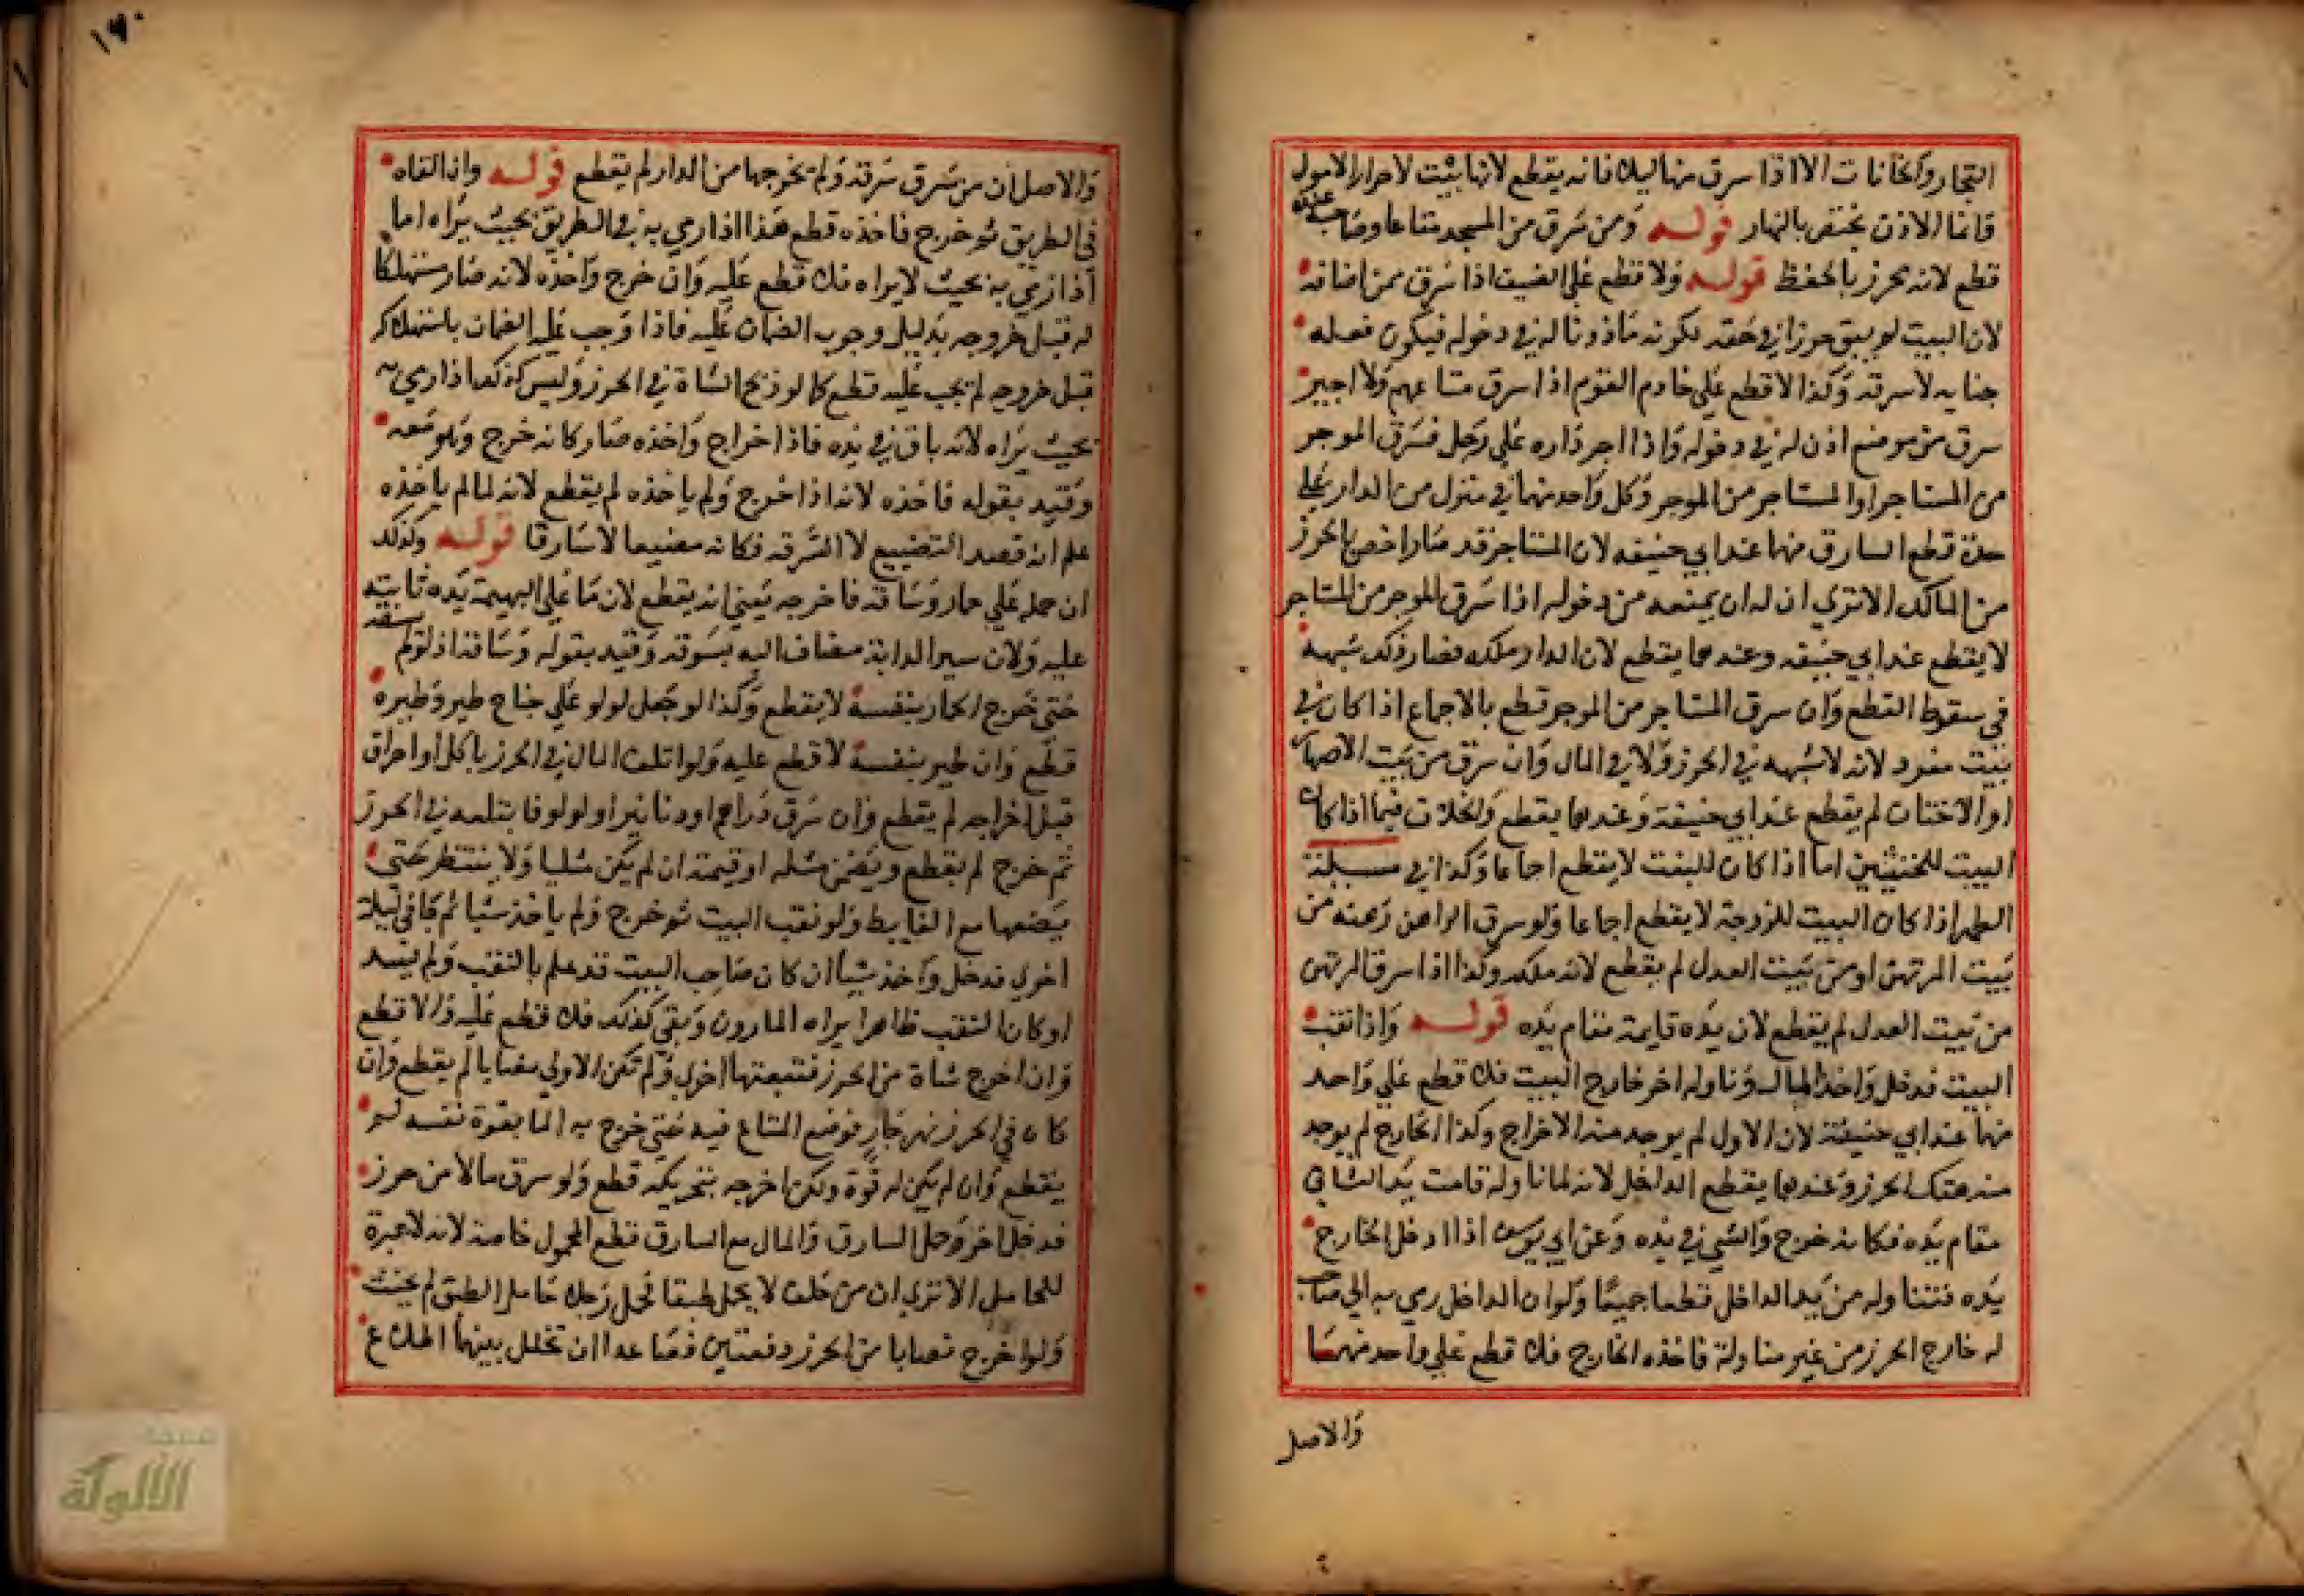 التجار والخانات الا اذا سرق منها ليلا فانه يقطع لانها بنيت لاحراز الاموال
فانما الاذن يختص بالنهار قوله ومن سرق من المسجد متاعا وصاحبه عنده
قطع لانه محرز بالحفظ قوله ولا قطع على الضيف اذا سرق ممن اضافه
لان البيت لم يبق حرزا في حقه لكونه ماذونا له في دخوله فيكون فعله
جنايه لا سرقه وكذا لا قطع على خادم القوم اذا سرق متاعهم ولا اجير
سرق من موضع اذن له في دخوله واذا اجر داره على رجل فسرق الموجر
من المستاجر او المستاجر من الموجر وكل واحد منهما في منزل من الدار على
حدة قطع السارق منهما عند ابي حنيفه لان المستاجر قد صار اخص بالحرز
من المالك الا تري ان له ان يمنعه من دخوله اذا سرق الموجر من المستاجر
لا يقطع عند ابي حنيفه وعندهما يقطع لان الدار ملكه فصار ذلك شبهة
في سقوط القطع وان سرق المستاجر من الموجر قطع بالاجماع اذا كان في
بيت مفرد لانه لا شبهه في الحرز ولا في المال وان سرق من بيت الاصهار
او الاختان لم يقطع عند ابي حنيفة وعندهما يقطع والخلاف فيما اذا كان
البيت للختن اما اذا كان للبنت لا يقطع اجماعا وكذا في مسيلة
الصهر اذا كان البيت للزوجة لا يقطع اجماعا ولو سرق الراهن رهنه من
بيت المرتهن او من بيت العدل لم يقطع لانه ملكه وكذا اذا سرق المرتهن
من بيت العدل لم يقطع لان يده قايمة مقام يده قوله واذا نقب
البيت فدخل واخذ المال وناوله اخر خارج البيت فلا قطع على واحد
منهما عند ابي حنيفة لان الاول لم يوجد منه الاخراج وكذا الخارج لم يوجد
منه هتك الحرز وعندهما يقطع الداخل لانه لما ناوله قامت يد الثاني
مقام يده فكانه خرج والشي في يده وعن ابي يوسف اذا ادخل الخارج
يده فتناوله من يد الداخل قطعا جميعا ولو ان الداخل رمي به الي صاحب
له خارج الحرز من غير مناولة فاخذه الخارج فلا قطع على واحد منهما
والاصل
١٩٠
والاصل ان من سرق سرقة ولم يخرجها من الدار لم يقطع قوله وان القاه
في الطريق ثم خرج فاخذه قطع هذا اذا رمي به في الطريق بحيث يراه اما
اذا رمي به بحيث لا يراه فلا قطع عليه وان خرج واخذه لانه صار مستهلكا
له قبل خروجه بدليل وجوب الضمان عليه فاذا وجب عليه الضمان باستهلاكه
قبل خروجه لم يجب عليه قطع كما لو ذبح الشاة في الحرز وليس كذلك اذا رمي به
بحيث يراه لانه باق في يده فاذا خرج واخذه صار كانه خرج وهو معه
وقيد بقوله فاخذه لانه اذا خرج ولم ياخذه لم يقطع لانه لما لم ياخذه
علم انه قصد التضييع لا السرقه فكانه مضيعا لا سارقا قوله وكذلك
ان حمله على حمار وساقه فاخرجه يعني انه يقطع لان ما على البهيمة يده ثابته
عليه ولان سير الدابة مضاف اليه بسوقه وقيد بقوله وساقه اذ لو لم يسقه
حتى خرج الحمار بنفسه لا يقطع وكذا لو جعل لولو على جناح طير وطيره
قطع وان طير بنفسه لا قطع عليه ولو اتلف المال في الحرز باكل او احراق
قبل اخراجه لم يقطع وان سرق دراهم او دنانير او لولو فابتلعه في الحرز
ثم خرج لم يقطع ويضمن مثله او قيمته ان لم يكن مثليا ولا ينتظر حتى
يضعها مع الغايط ولو نقب البيت ثم خرج ولم ياخذ شيا ثم جا في ليلة
اخري فدخل واخذ شيا ان كان صاحب البيت قد علم بالنقب ولم يسد
او كان النقب ظاهرا يراه المارون وبقي كذلك فلا قطع عليه والا قطع
وان اخرج شاة من الحرز فتبعتها اخري ولم تكن الاولي نصابا لم يقطع وان
كان في الحرز نهر جار فوضع المتاع فيه حتى خرج به الما بقوة نفسه لم
يقطع وان لم يكن له قوة ولكن اخرجه بتحريكه قطع ولو سرق مالا من حرز
فدخل اخر وحمل السارق والمال مع السارق قطع المحمول خاصة لانه لا عبرة
للحامل الا تري ان من حلف لا يحمل طبقا فحمل رجلا حامل الطبق لم يحنث
ولو اخرج نصابا من الحرز دفعتين فصاعدا ان تخلل بينهما اطلاع
الألوكة